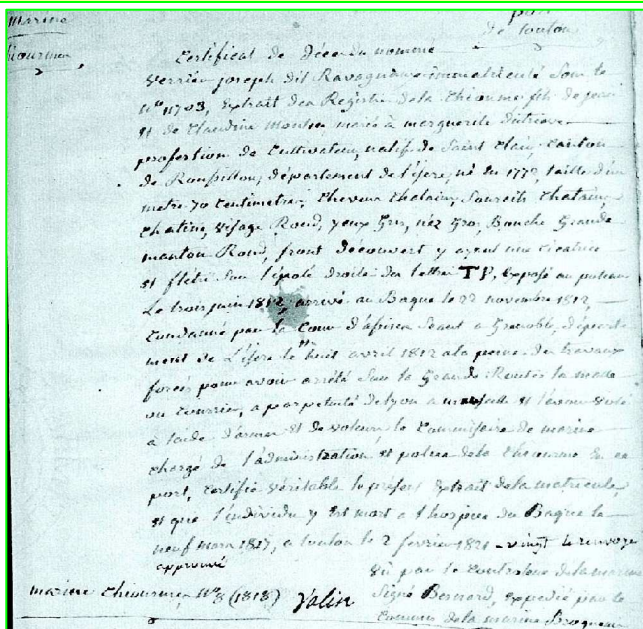 Marine
port
de toulon
Chiourmes
Certificat de Décès du nommé
Verrier joseph dit Ravagnan immatriculé Sous le
N° 11703, Extrait des Registres de la Chiourme fils de
et de Claudine marié à marguerite
profession de Cultivateur, natif de Saint Clair, Canton
de Roussillon, département de l'isere, né en 1772, taille d'un
metre 70 Centimetres, Cheveux Chatains, Sourcils Chatains,
Visage Rond, yeux Gris, nez Gros, Bouche Grande
manton Rond, front découvert y ayant une cicatrice
et flétri Sur l'épale droite des lettres T P, Exposé au poteau
Le trois juin 1812, arrivé au Bagne le 22 novembre 1812
Condamné par la Cour d'assises Séant a Grenoble, départe
ment de L'isere le huit avril 1812 a la peine des travaux
forcés pour avoir arrêté Sur la Grande Route la malle
ou Courrier, a perpetuité de lyon a et l'avoir volé
a l'aide d'armes et de voleurs, le Commissaire de marine
chargé de l'administration et police de la Chiourme en ce
port, Certifie véritable le présent Extrait de la matricule,
et que l'individu y Est mort a l'hospice du Bagne le
neuf mars 1817, a toulon le 2 fevrier 1821 - vingt
approuvé
Vu par le Controleur de la marine
marine Chiourmes N°8 (1818) Valin Signé Bernard, Expédié par le
Commis de la marine